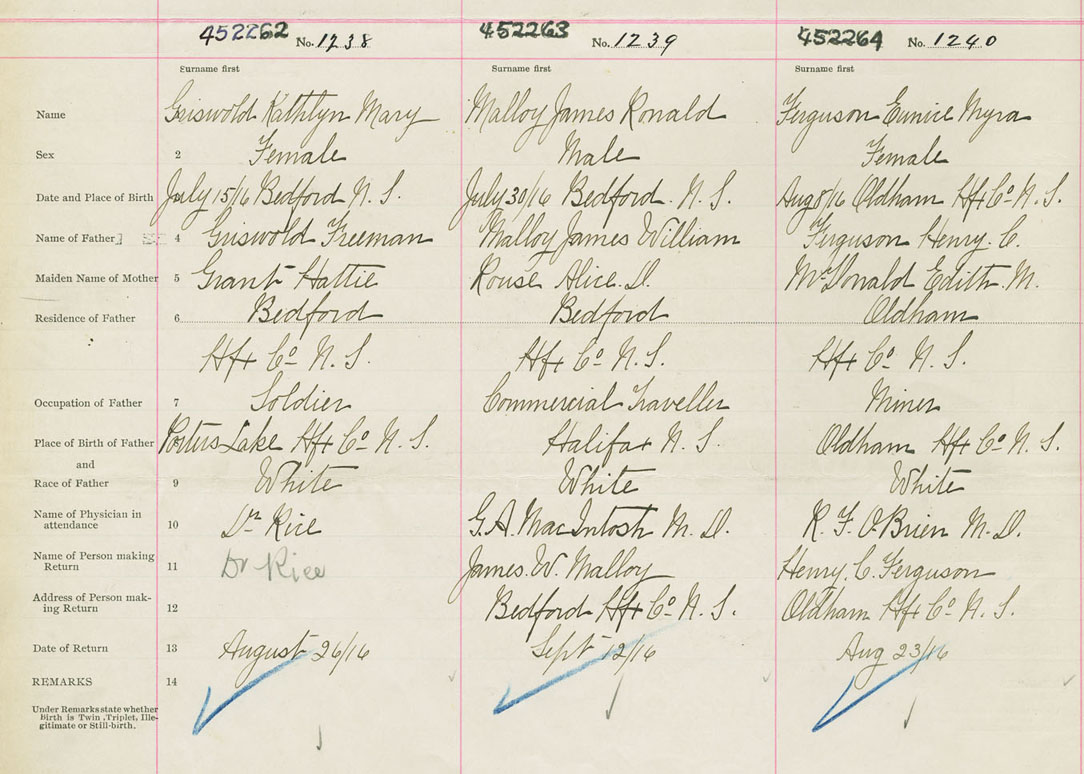 452262 No. 1238 452263 No. 1239 452264 No. 1240
Surname first Surname first Surname first
Name Griswold Kathlyn Mary Malloy James Ronald Ferguson Eunice Myra
Sex 2 Female Male Female
Date and Place of Birth July 15/16 Bedford N. S. July 30/16 Bedford. N. S. Aug 8/16 Oldham Hfx Co N. S.
Name of Father 4 Griswold Freeman Malloy James William Ferguson Henry. C.
Maiden Name of Mother 5 Grant Hattie Rouse Alice. D. McDonald Edith. M.
Residence of Father 6 Bedford Bedford Oldham
Hfx Co N. S. Hfx Co N. S. Hfx Co N. S.
Occupation of Father 7 Soldier Commercial Traveller Miner
Place of Birth of Father Porters Lake Hfx Co N. S. Halifax N. S. Oldham Hfx Co N. S.
and
Race of Father 9 White White White
Name of Physician in attendance 10 Dr Rice G. A. MacIntosh M. D. R. F. O'Brien M. D.
Name of Person making Return 11 Dr Rice James. W. Malloy Henry. C. Ferguson
Address of Person making Return 12 Bedford Hfx Co N. S. Oldham Hfx Co N. S.
Date of Return 13 August 26/16 Sept 12/16 Aug 23/16
REMARKS 14
Under Remarks state whether
Birth is Twin, Triplet, Ille-
gitimate or Still-birth.